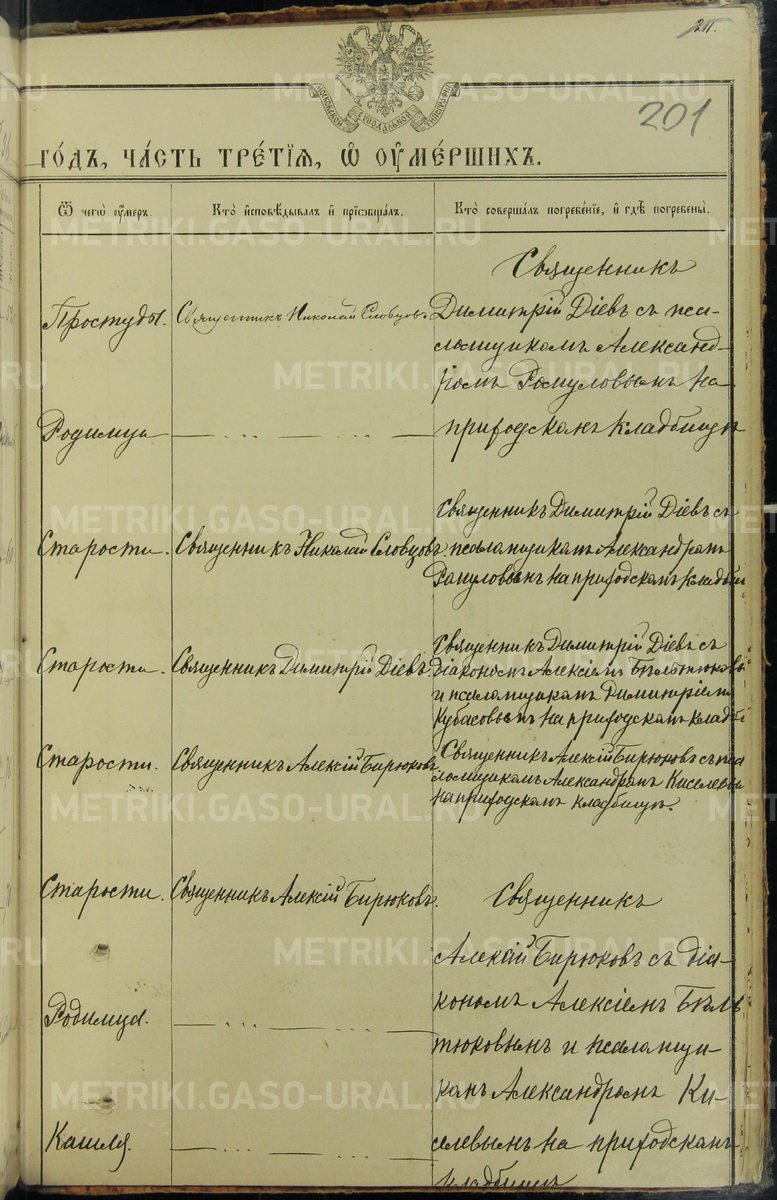 211.
201
МОСКОВСКОЙ СѴНОДАЛЬНОЙ ТИПОГРАФІИ
ГО́ДЪ, ЧА́СТЬ ТРЕ́ТІЯ, Ѡ҆ ОУ҆МЕ́РШИХЪ.
Ѿ чегѡ̀ оу҆́меръ.
Кто̀ и҆сповѣ́дывалъ и҆ прїѡбща́лъ.
Кто̀ соверша́лъ погребе́нїе, и҆ гдѣ̀ погребены̀.
Простуды.
Священникъ Николай Словцовъ.
Священникъ
Димитрій Діевъ съ пса-
ломщикомъ Александ-
ромъ Ромуловымъ на
приходскомъ кладбищѣ
Родимца
— ... —
Старости.
Священникъ Николай Словцовъ.
Священникъ Димитрій Діевъ съ
псаломщикомъ Александромъ
Ромуловымъ на приходскомъ кладби
Старости.
Священникъ Димитрій Діевъ.
Священникъ Димитрій Діевъ съ
діакономъ Алексіемъ Бѣльтюковы
и псаломщикомъ Димитріемъ
Кубасовымъ на приходскомъ кладби
Старости.
Священникъ Алексій Бирюковъ.
Священникъ Алексій Бирюковъ съ пса
ломщикомъ Александромъ Киселевы
на приходскомъ кладбищѣ.
Старости.
Священникъ Алексій Бирюковъ.
Священникъ
Алексій Бирюковъ съ діа-
кономъ Алексіемъ Бѣль
тюковымъ и псаломщи-
комъ Александромъ Ки-
селевымъ на приходскомъ
кладбищѣ
Родимца.
— ... —
Кашля.
— ... —
METRIKI.GASO-URAL.RU